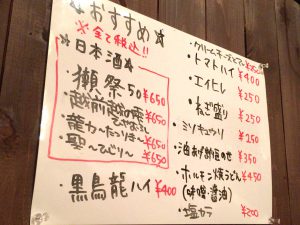 ☆おすすめ☆
※全て税込!!
※日本酒☆
・獺祭50 ¥650
・越前
¥650
・龍力
¥650
・聖 ¥650
・黒烏龍ハイ ¥400
・クリームチーズ
・トマトハイ ¥400
・エイヒレ ¥250
・ねぎ盛り ¥250
・ミソキュウリ ¥250
・油あげ納豆のせ ¥350
・ホルモン焼うどん ¥450
(味噌・醤油)
・塩カラ ¥200